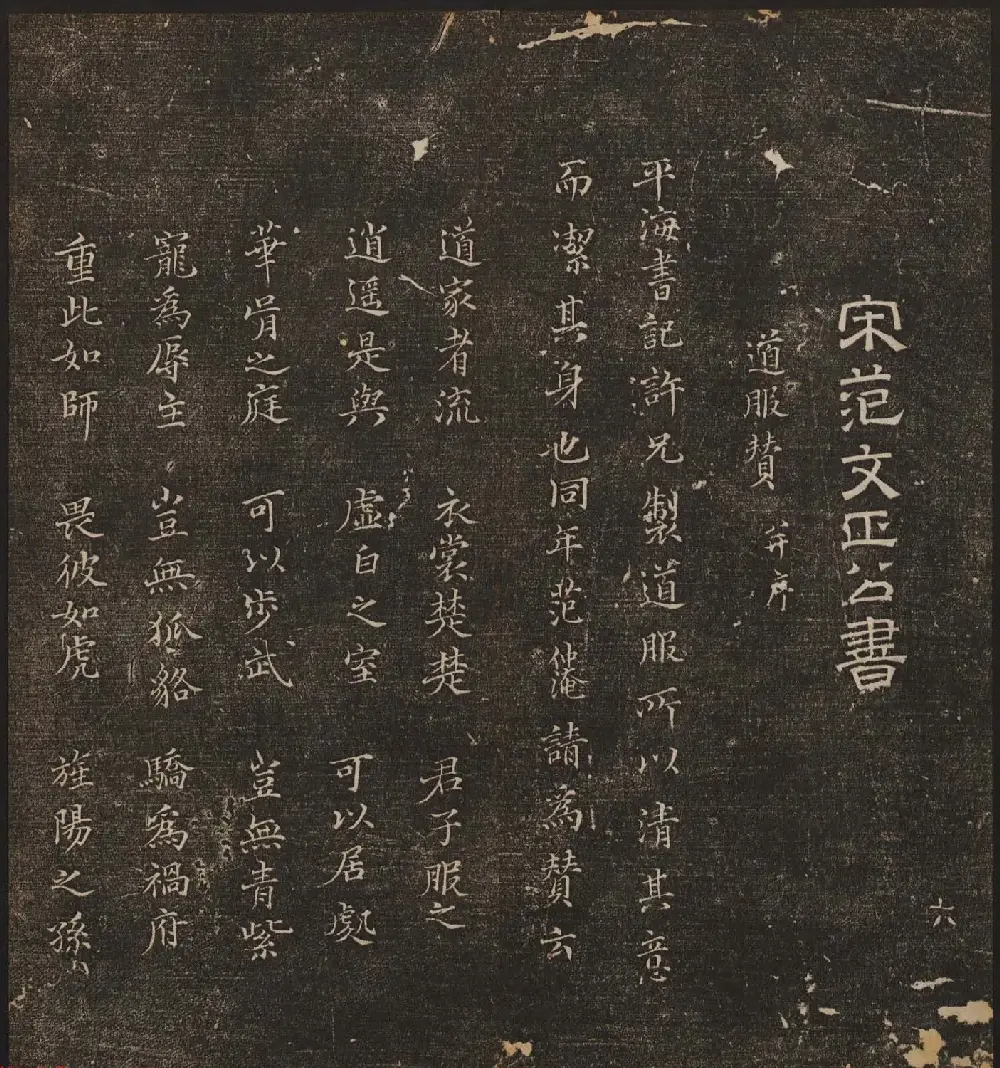 宋范文正公書
道服贊 并序
平海書記許兄製道服所以清其意
而潔其身也同年范仲淹請為贊云
道家者流 衣裳楚楚 君子服之
逍遥是與 虚白之室 可以居處
華胥之庭 可以步武 豈無青紫
寵為辱主 豈無狐貉 驕為禍府
重此如師 畏彼如虎 旌陽之孫
六